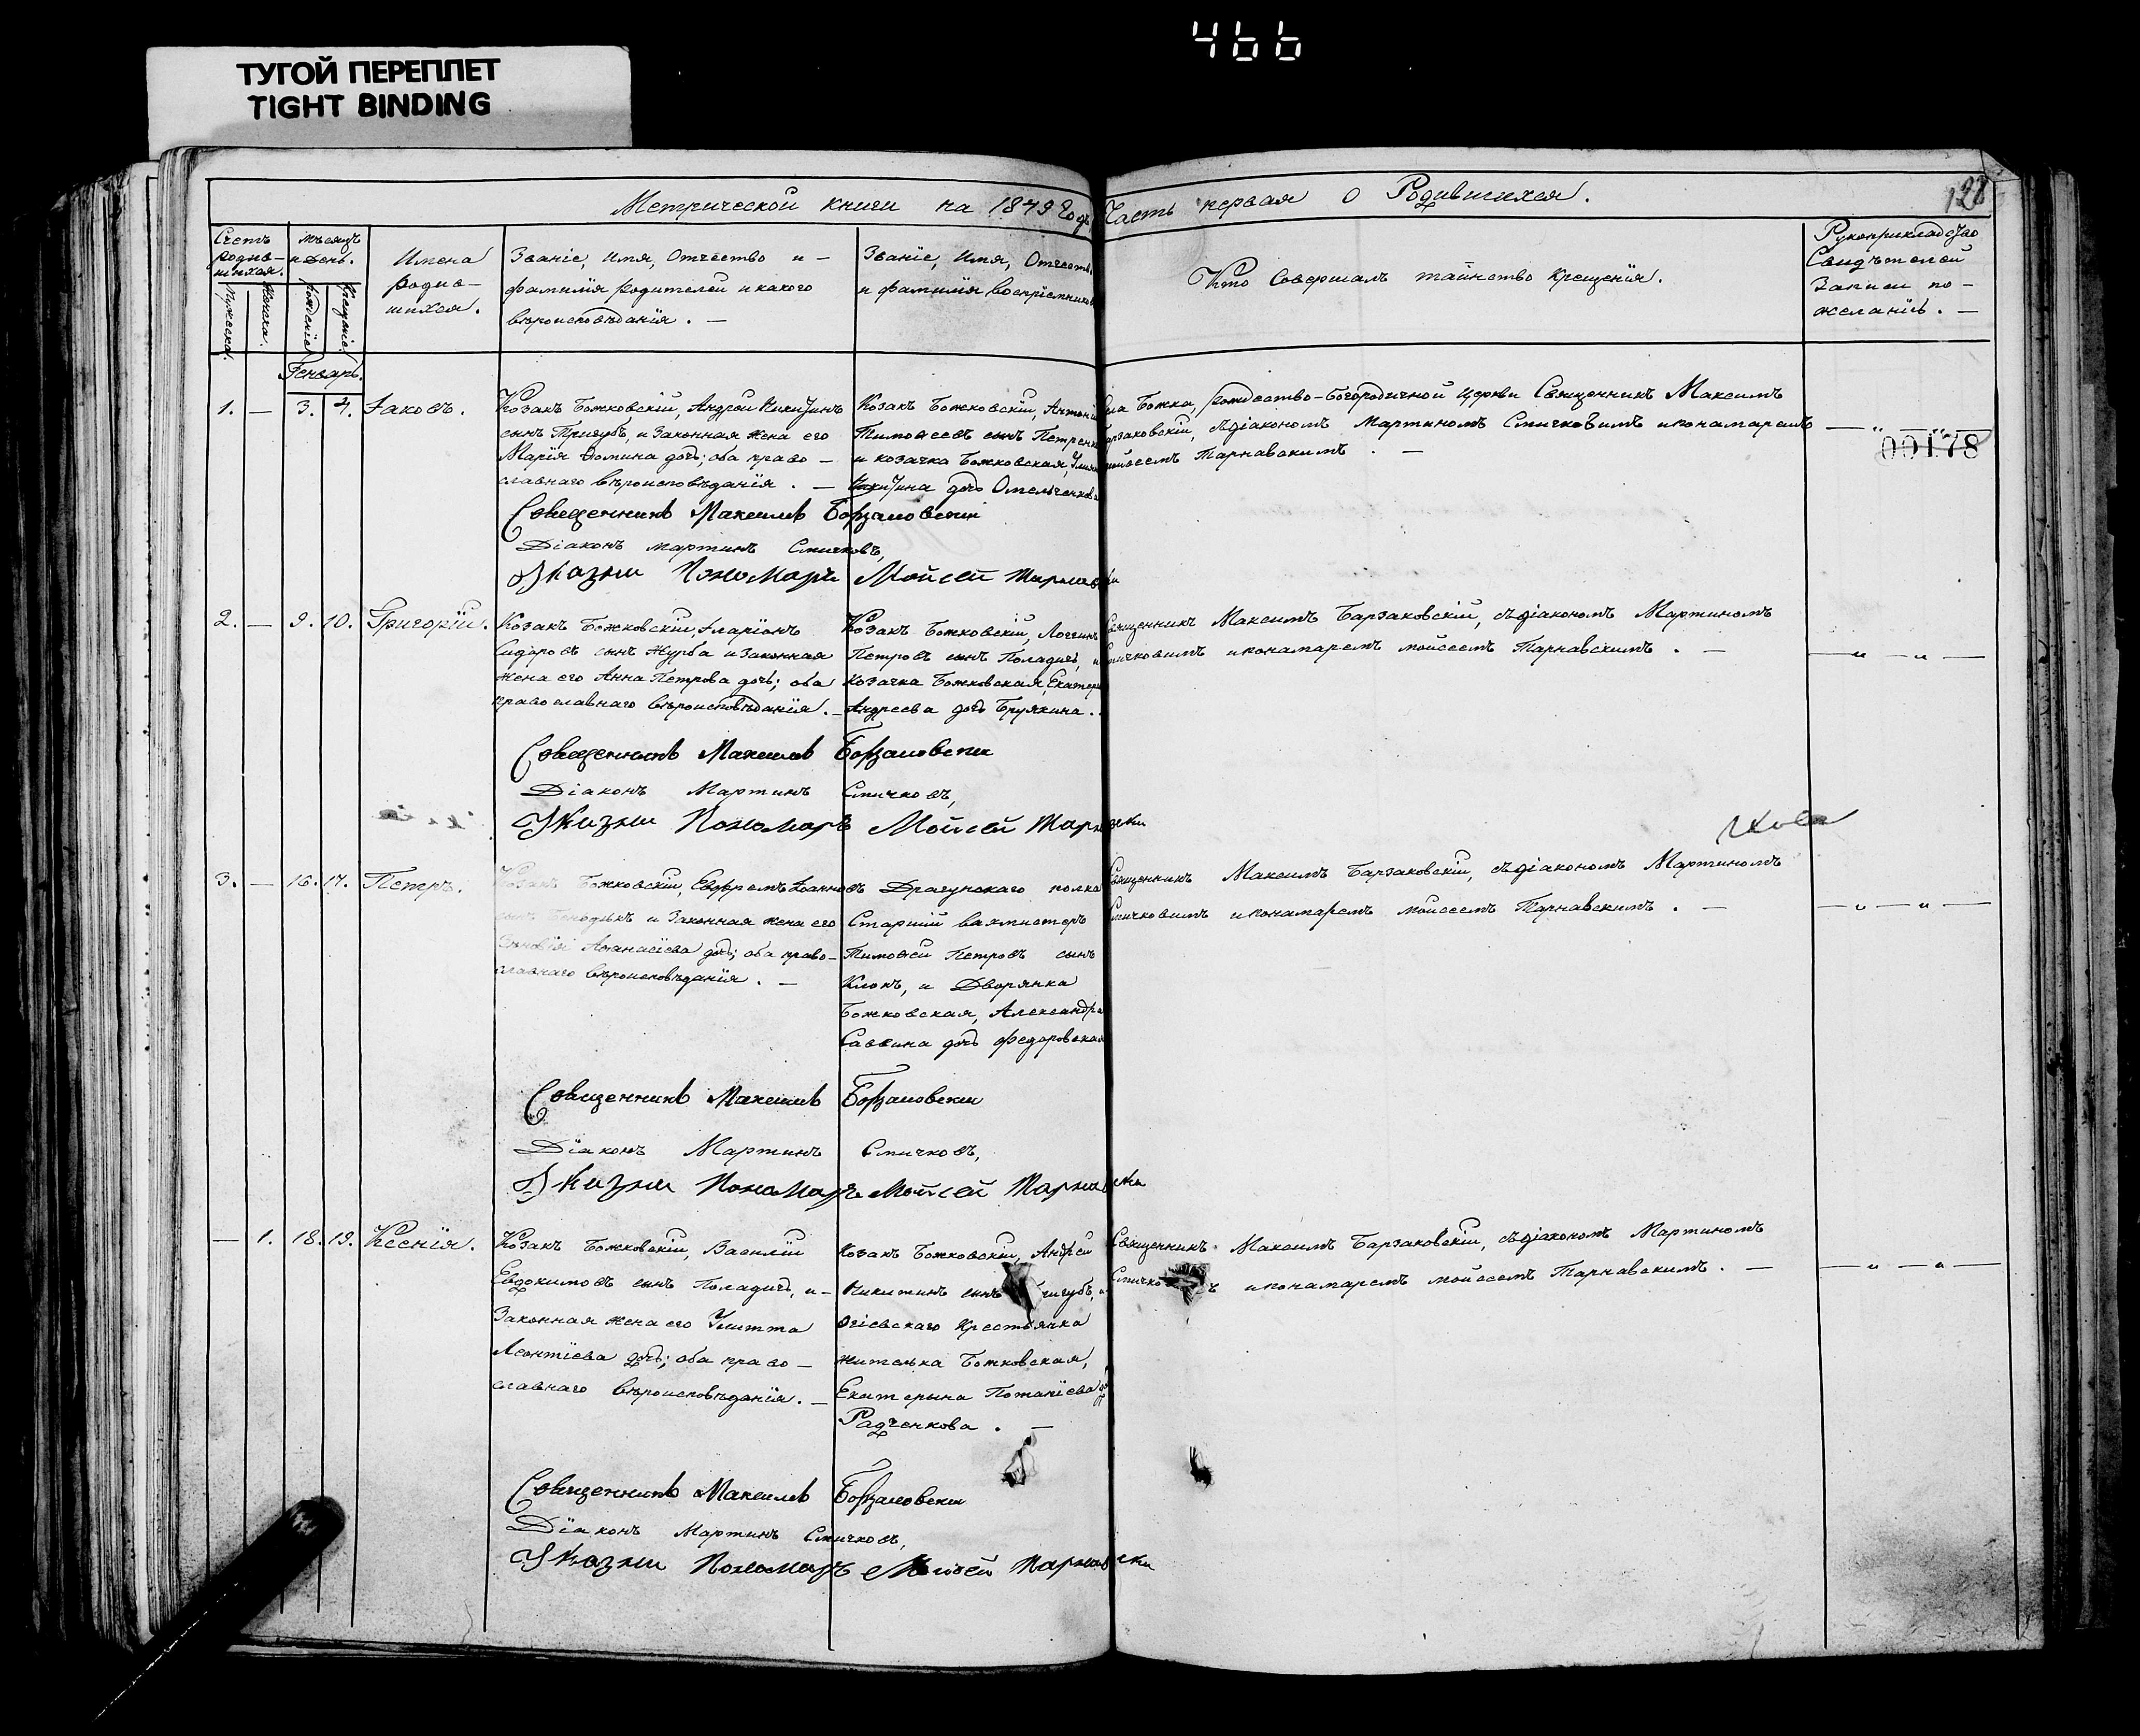 466
ТУГОЙ ПЕРЕПЛЕТ
TIGHT BINDING
Метрической книги на 1849 Годъ Часть первая о Родившихся.
128
Счетъ родив-шихся.
Мужеска.
Женска.
Мѣсяцъ и день.
рожденіе
Крещеніе
Имена
родив-
шихся.
Званіе, Имя, Отчество и -
фамилія родителей и какого
вѣроисповѣданія. —
Званіе, Имя, Отчество,
и фамилія воспріемниковъ
Кто Совершалъ таинство Крещенія.
Рукоприкладство
Свидѣтелей
Записи по -
желанію. —
Генварь.
1. — 3. 4. Іаковъ.
Козакъ Божковскій, Андрей Никитинъ
сынъ Тригубъ, и Законная жена его
Марія Фомина дочь; оба право -
славнаго вѣроисповѣданія. —
Козакъ Божковскій, Антоній
Тимофеевъ сынъ Петренко
и козачка Божковская,
Никитина дочь Омельченкова
Села Божка, рождество-Богородичной Церкви Священникъ Максимъ
Барзаковскій, съ діакономъ Мартиномъ Смичковимъ и понамаремъ
мойсеемъ Тарнавскимъ. —
00178
Священникъ Максимъ Борзаковски
Діаконъ Мартинъ Смичковъ,
Указни Пономаръ Мойсей Тарнавски
2. — 9. 10. Григорій.
Козакъ Божковскій, Иларіонъ
Сидоровъ сынъ Журба и Законная
жена его Анна Петрова дочь; оба
православнаго вѣроисповѣданія. —
Козакъ Божковскій, Логгинъ
Петровъ сынъ Поладичъ, и
козачка Божковская, Екатери
Андреева дочь Брулкина.
Священникъ Максимъ Барзаковскій, съ діакономъ Мартиномъ
Смичковимъ и понамаремъ мойсеемъ Тарнавскимъ. —
Священникъ Максимъ Борзаковски
Діаконъ Мартинъ Смичковъ,
Указни Пономаръ Мойсей Тарнавски
3. — 16. 17. Петръ.
Козакъ Божковскій, Ефремъ Іоанновъ
сынъ и Законная жена его
Афанасіева дочь; оба право -
славнаго вѣроисповѣданія. —
Драгунскаго полка
Старшій вахмистеръ
Тимофей Петровъ сынъ
Клокъ, и Дворянка
Божковская, Александра
Саввина дочь Федоровская
Священникъ Максимъ Барзаковскій, съ діакономъ Мартиномъ
Смичковимъ и понамаремъ мойсеемъ Тарнавскимъ. —
Священникъ Максимъ Борзаковски
Діаконъ Мартинъ Смичковъ,
Указни Пономаръ Мойсей Тарнавски
— 1. 18. 19. Ксенія.
Козакъ Божковскій, Василій
Евдокимовъ сынъ Поладичъ, и -
Законная жена его Улитта
Леонтіева дочь; оба право -
славнаго вѣроисповѣданія. —
Козакъ Божковскій, Андрей
Никитинъ сынъ Тригубъ, и
Крестьянка
жителька Божковская,
Екатерына Потапіева дочь
Радченкова. —
Священникъ Максимъ Барзаковскій, съ діакономъ Мартиномъ
Смичковимъ и понамаремъ мойсеемъ Тарнавскимъ. —
Священникъ Максимъ Борзаковски
Діаконъ Мартинъ Смичковъ,
Указни Пономаръ Мойсей Тарнавски